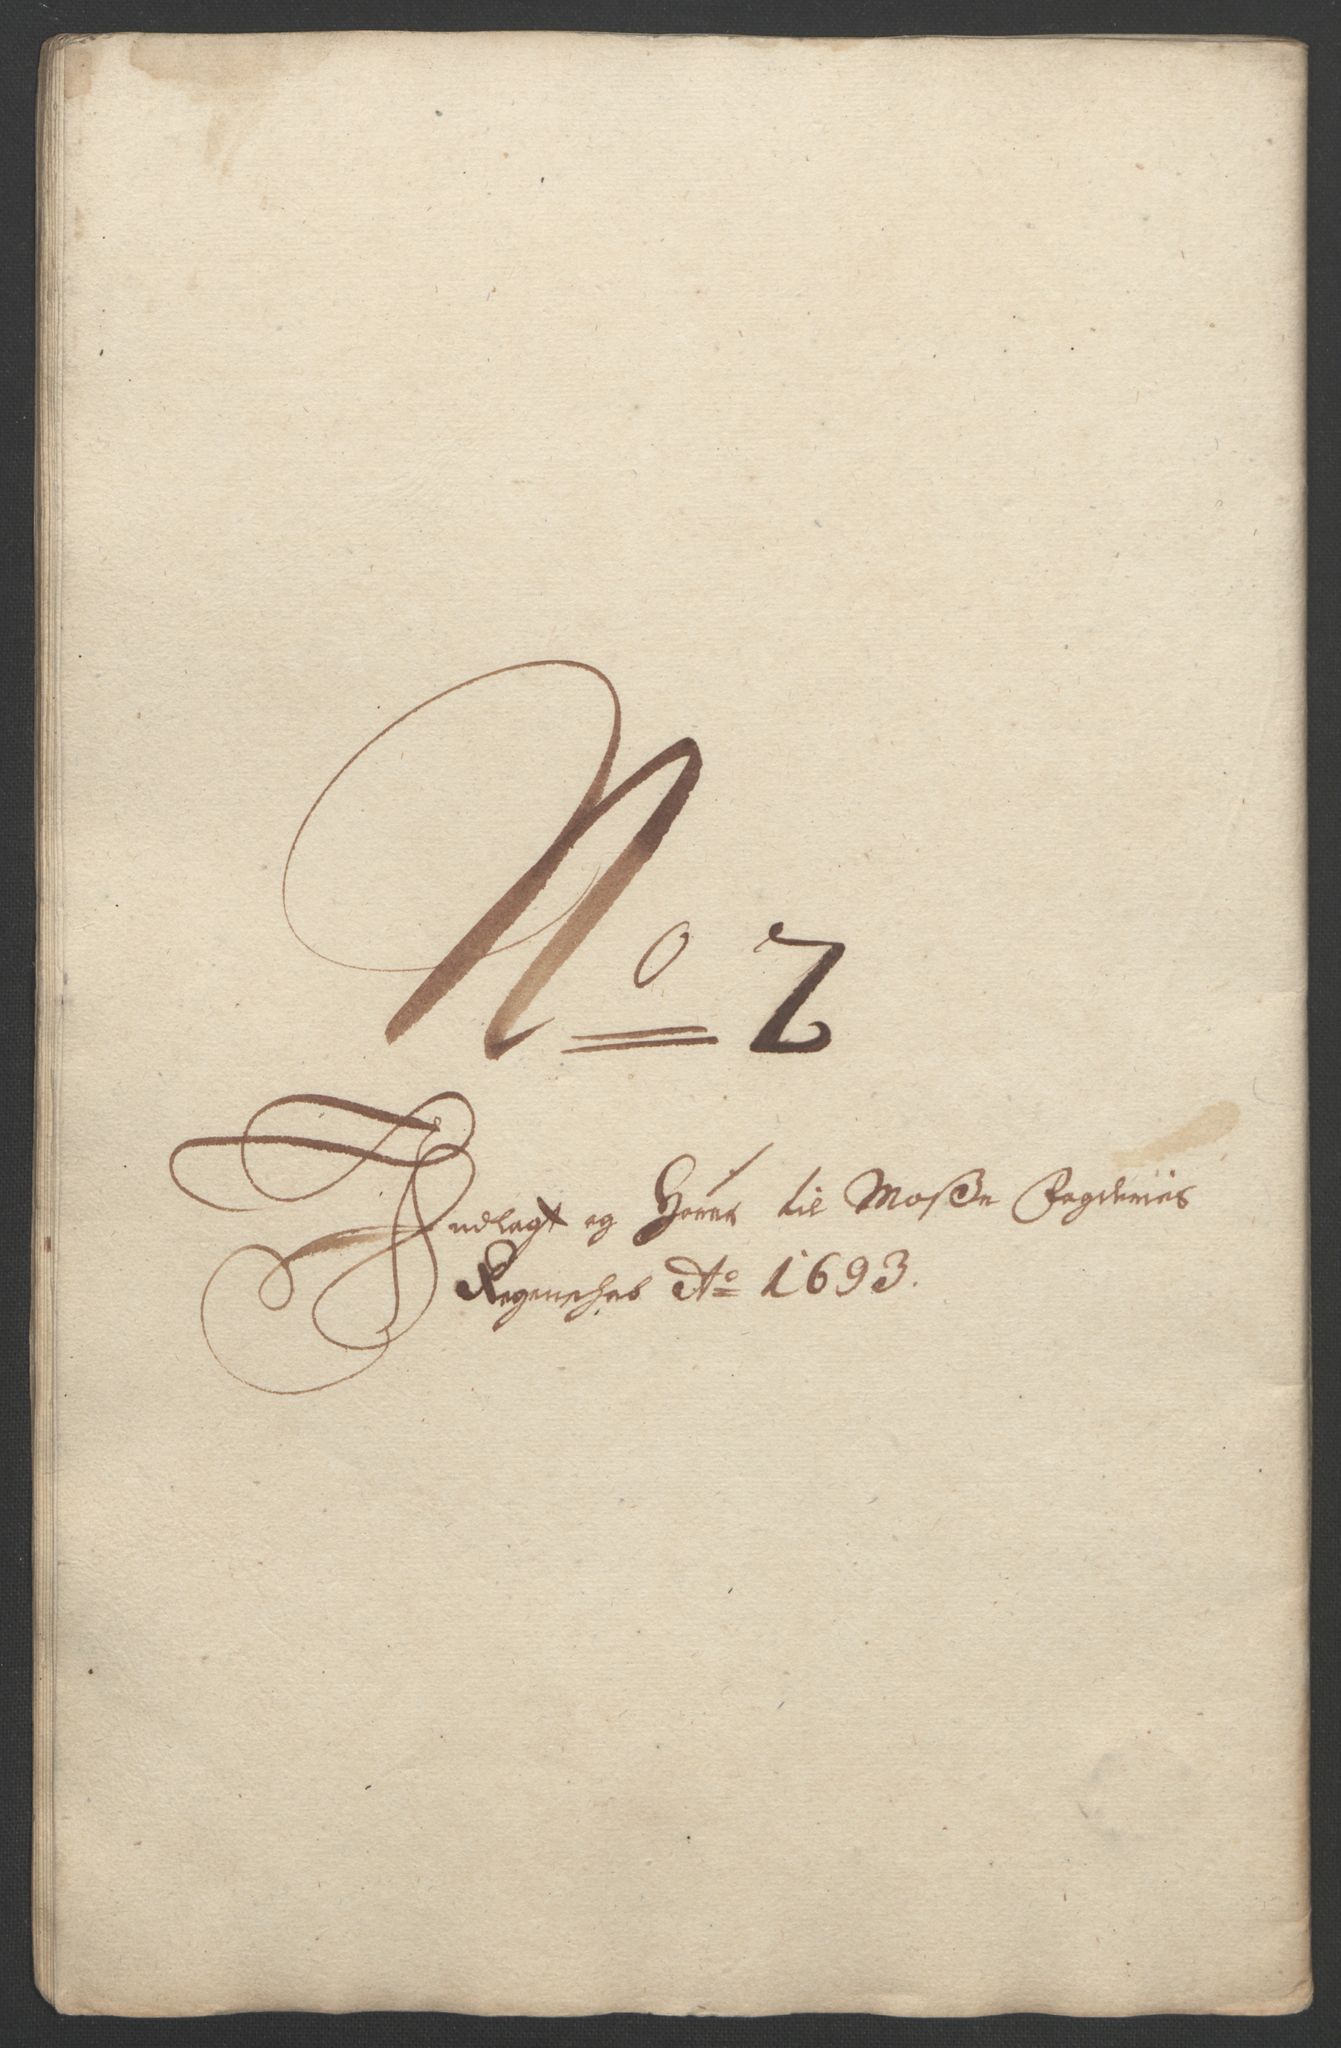 No 2
Indlagt og Hører til Mosße Fogderies
Regenschab Ao 1693.